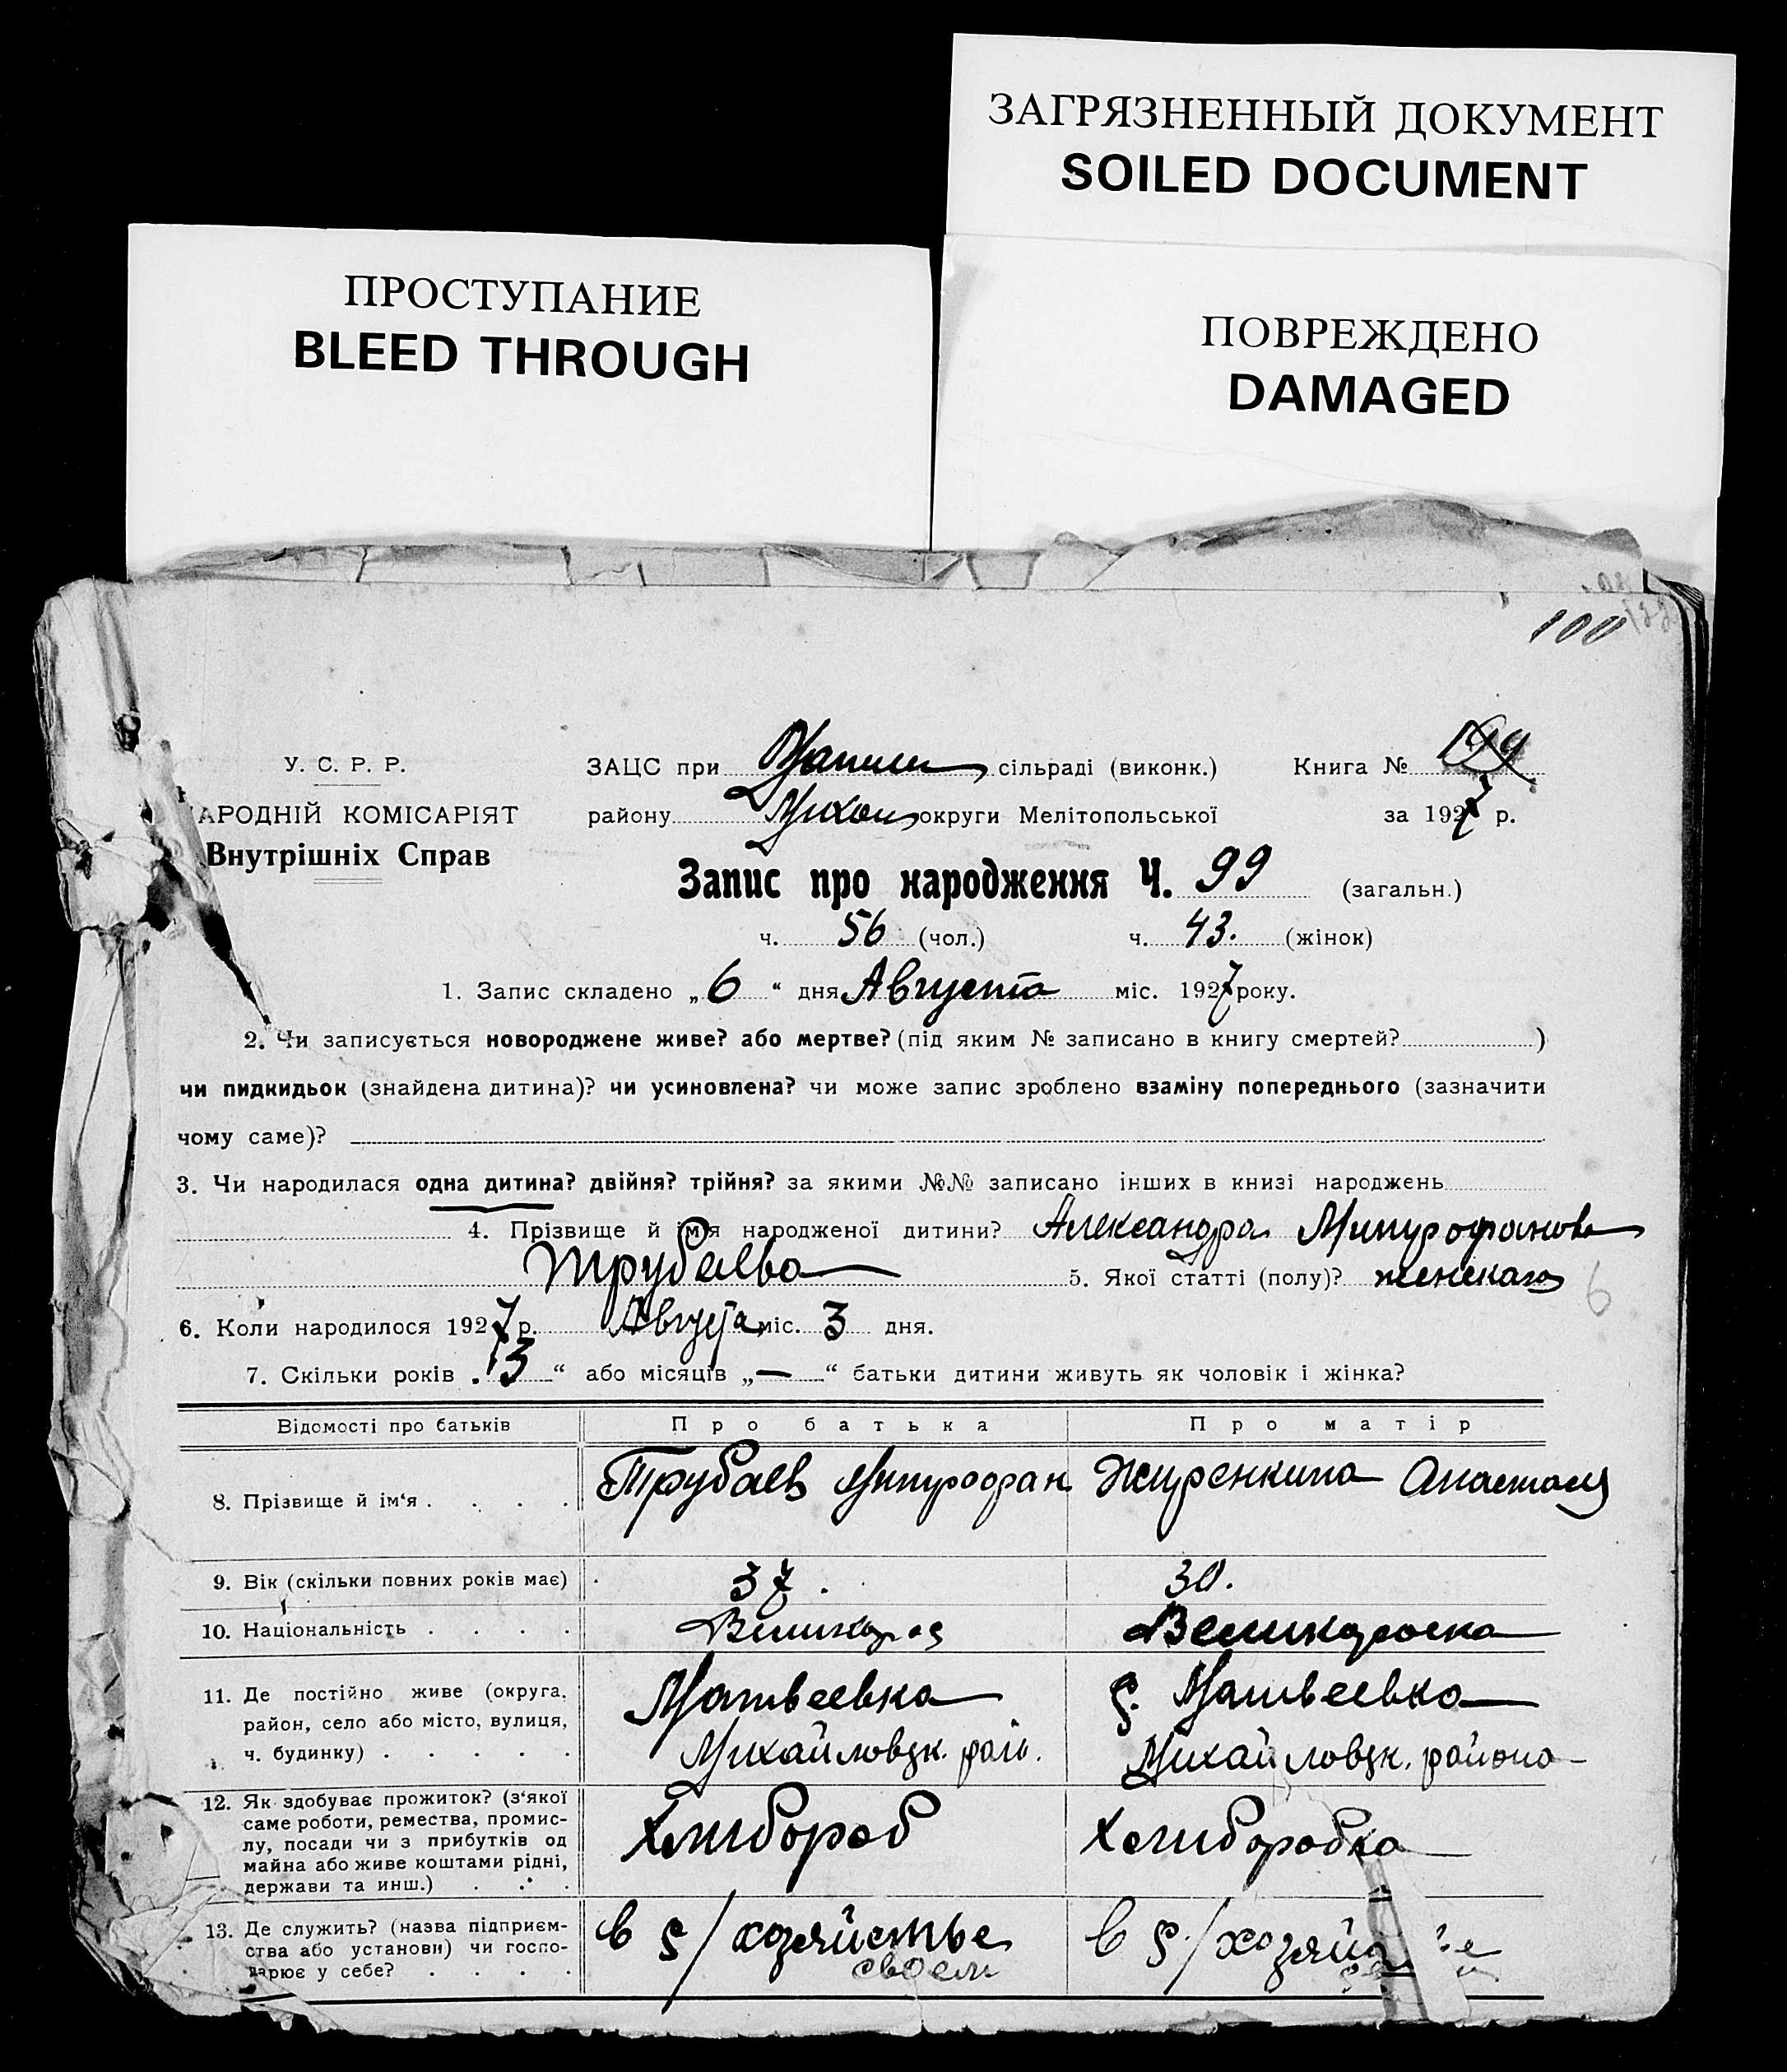 ЗАГРЯЗНЕННЫЙ ДОКУМЕНТ
SOILED DOCUMENT
ПРОСТУПАНИЕ
BLEED THROUGH
ПОВРЕЖДЕНО
DAMAGED
100
У. С. Р. Р.
АРОДНІЙ КОМІСАРІЯТ
Внутрішніх Справ
ЗАЦС при сільраді (виконк.) Книга №
району Михаи округи Мелітопольської за 1927 р.
Запис про народження Ч. 99 (загальн.)
ч. 56 (чол.) ч. 43. (жінок)
1. Запис складено „6“ дня Августа міс. 1927 року.
2. Чи записується новороджене живе? або мертве? (під яким № записано в книгу смертей? )
чи пидкидьок (знайдена дитина)? чи усиновлена? чи може запис зроблено взаміну попереднього (зазначити
чому саме)?
3. Чи народилася одна дитина? двійня? трійня? за якими №№ записано інших в книзі народжень
4. Прізвище й імя народженої дитини? Александра Митрофанова
Трубаева 5. Якої статті (полу)? женскаго
6
6. Коли народилося 1927 р. Августа міс. 3 дня.
7. Скільки років „13“ або місяців „—“ батьки дитини живуть як чоловік і жінка?
Відомості про батьків Про батька Про матір
8. Прізвище й ім‘я . . . . Трубаев Митрофан Журенкина Анастасия
9. Вік (скільки повних років має) 37. 30.
10. Національність . . . . Великорос Великороска
11. Де постійно живе (округа, район, село або місто, вулиця, ч. будинку) . . . . .
Матвеевка
Михайловск. райо.
с. Матвеевка
Михайловск. района
12. Як здобуває прожиток? (з‘якої
саме роботи, ремества, промис-
лу, посади чи з прибутків од
майна або живе коштами рідні,
держави та инш.) . . .
Хлибороб
Хлиборобка
13. Де служить? (назва підприєм-
ства або установи) чи госпо-
дарює у себе? . . . .
в с/хозяйстве
своем
в с/хозяйс ве